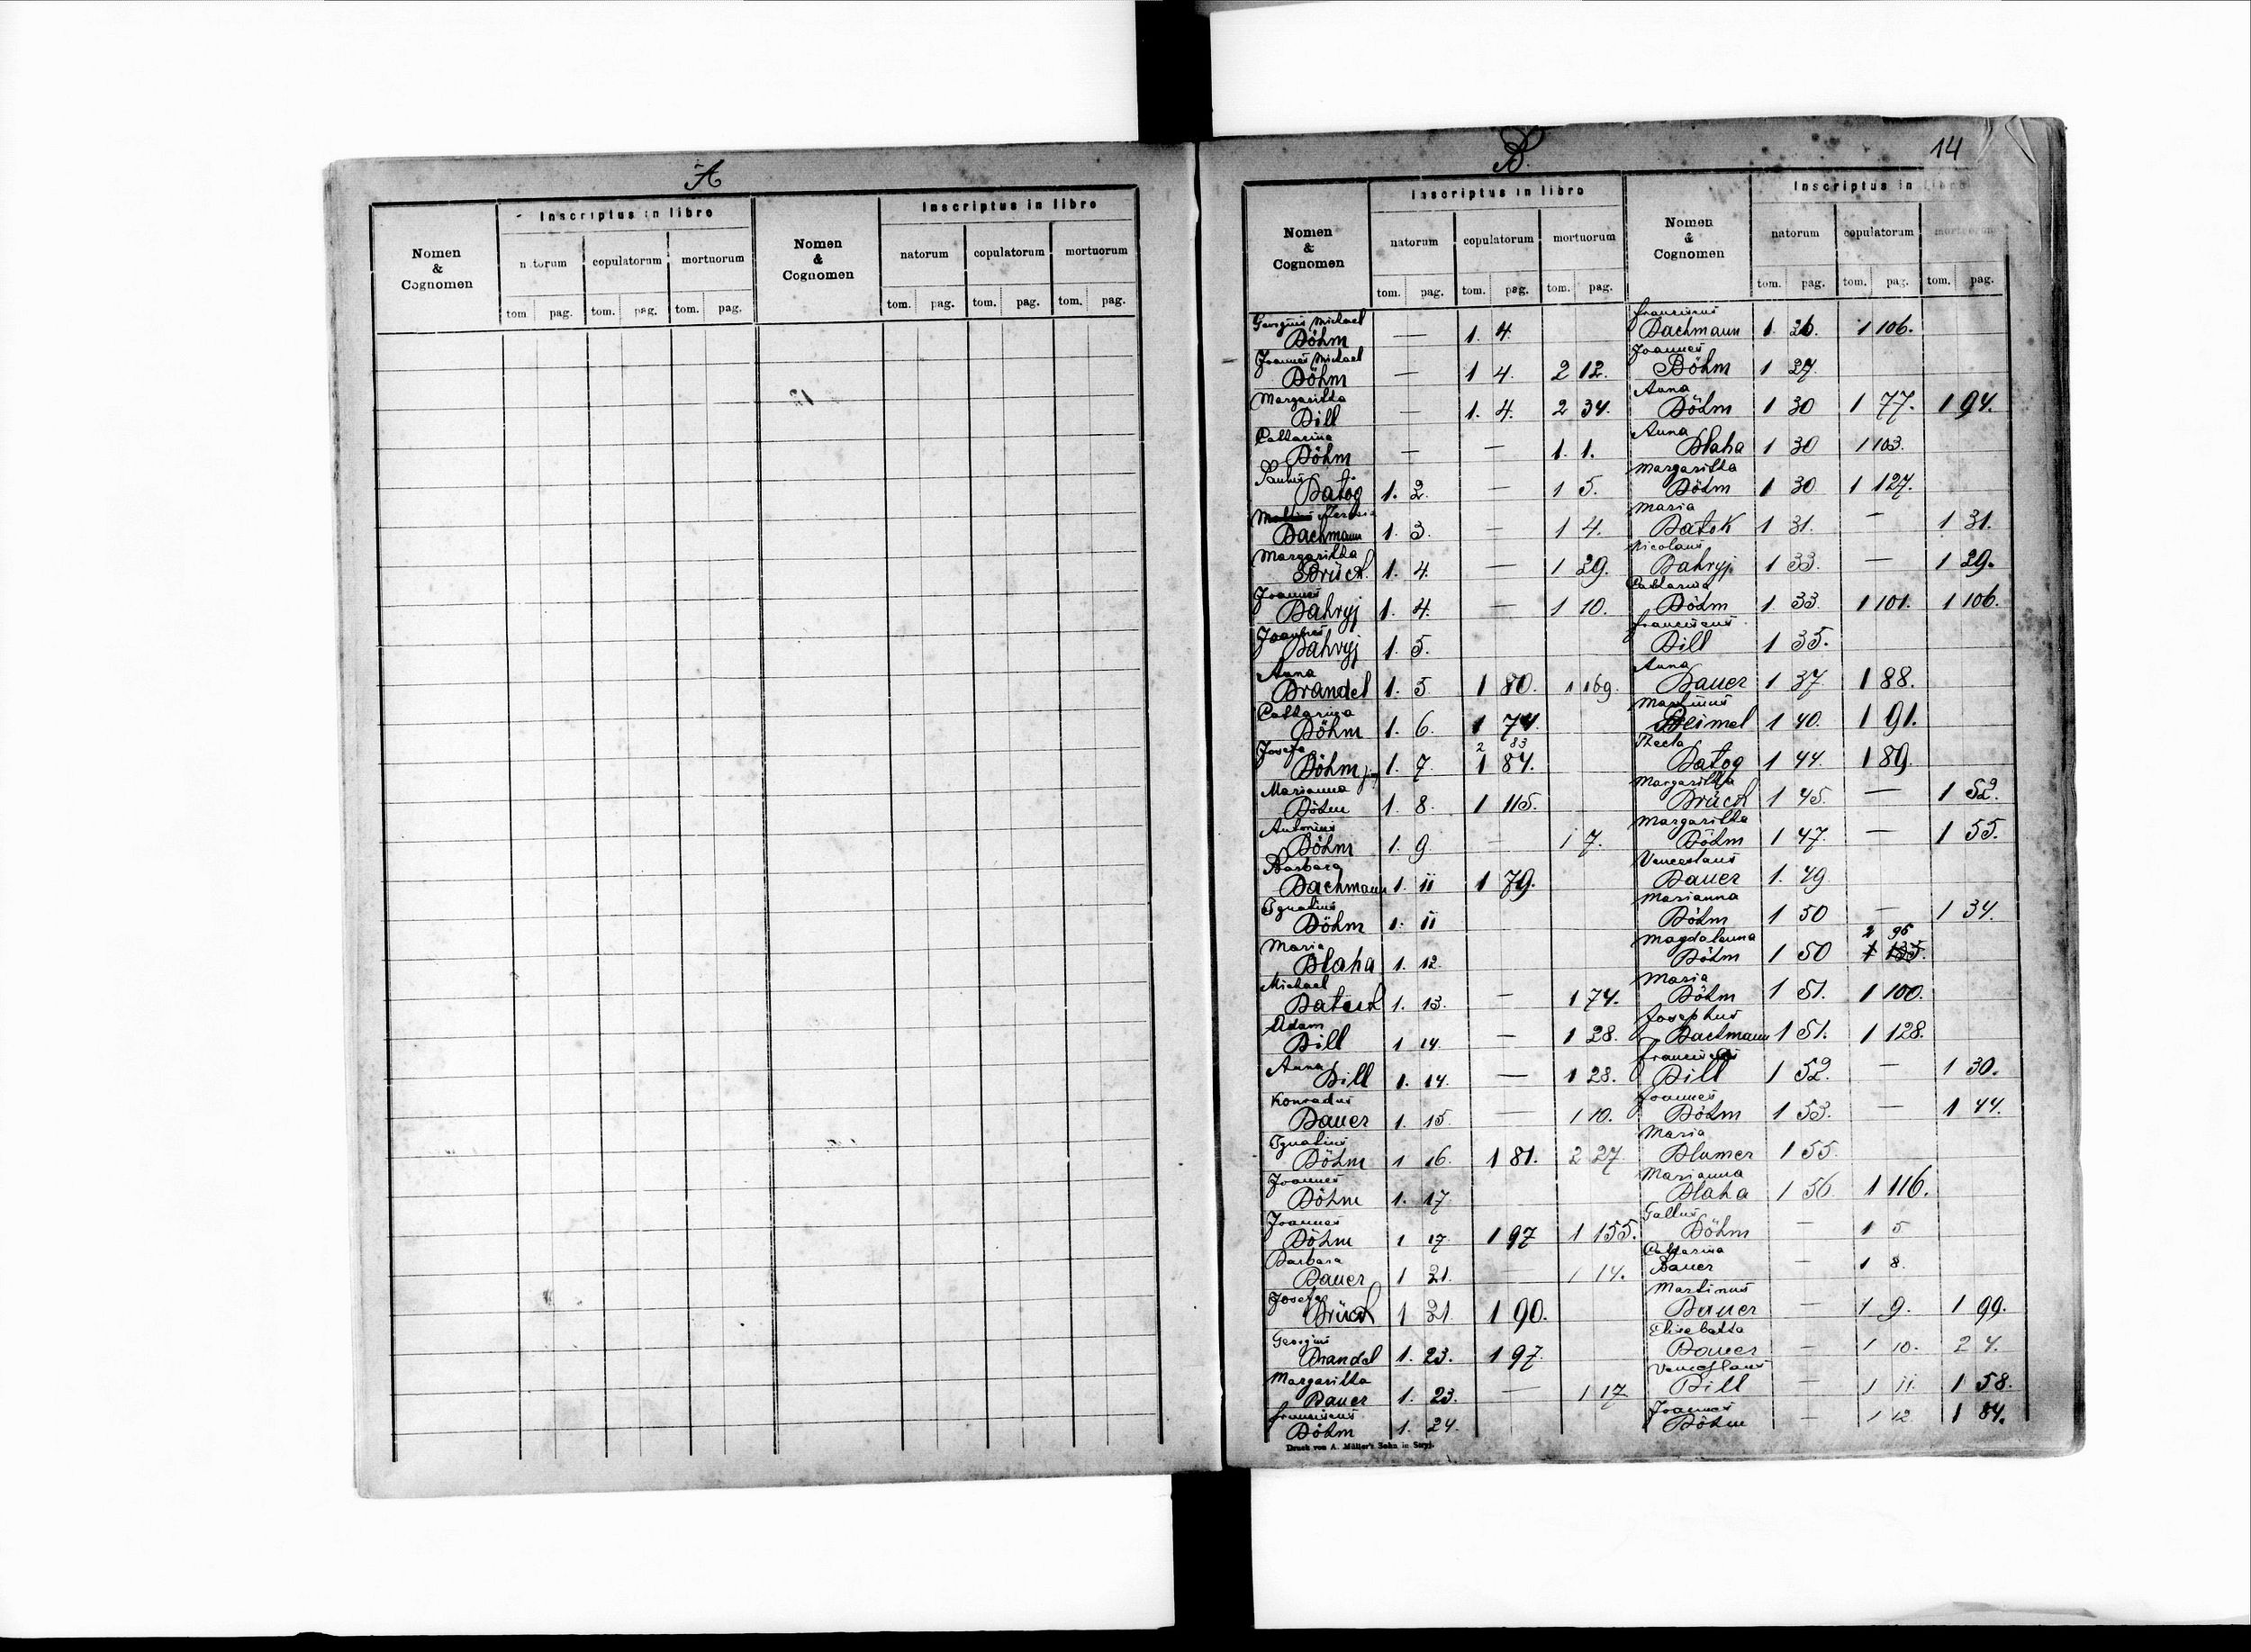 A
Inscriptus in libro
Inscriptus in libro
Nomen & Cognomen
natorum copulatorum mortuorum
Nomen & Cognomen
natorum copulatorum mortuorum
tom. pag. tom. pag. tom. pag.
tom. pag. tom. pag. tom. pag.
B.
14
Inscriptus in libro
Inscriptus in libro
Nomen & Cognomen
natorum copulatorum mortuorum
Nomen & Cognomen
natorum copulatorum mortuorum
tom. pag. tom. pag. tom. pag.
tom. pag. tom. pag. tom. pag.
Georgius Michael
Böhm — 1. 4.
Joannes Michael
Böhm — 1 4. 2 12.
Margaritha
Bill — 1. 4. 2 34.
Catharina
Böhm — — 1. 1.
Paulus
Batog 1. 2. — 1 5.
Teresia
Bachmann 1. 3. — 1 4.
Margaritha
Brück 1. 4. — 1 29.
Joannes
Bahryj 1. 4. — 1 10.
Joannes
Bahryj 1. 5.
Anna
Brandel 1. 5 1 80. 1 169.
Catharina
Böhm 1. 6. 1 74.
Josefa 2 83
Böhm 1. 7. 1 84.
Marianna
Böhm 1. 8. 1 115.
Antonius
Böhm 1. 9 — 1 7.
Barbara
Bachmann 1. 11 1 79.
Ignatius
Böhm 1. 11
Maria
Blaha 1. 12.
Michael
1. 13. — 1 74.
Adam
Bill 1 14. — 1 28.
Anna
Bill 1. 14. — 1 28.
Konradus
Bauer 1. 15. — 1 10.
Ignatius
Böhm 1 16. 1 81. 2 27.
Joannes
Böhm 1. 17
Joannes
Böhm 1 17. 1 97 1 155.
Barbara
Bauer 1 21. — 1 14.
Josefa
Brück 1 21 1 90.
Georgius
Brandel 1. 23. 1 97.
Margaritha
Bauer 1. 23. — 1 17
Franciscus
Böhm 1. 24.
Franciscus
Bachmann 1. 26. 1 106.
Joannes
Böhm 1 27.
Anna
Böhm 1 30 1 77. 1 94.
Anna
Blaha 1 30 1 103.
Margaritha
Böhm 1 30 1 127.
Maria
Batok 1 31. — 1 31.
Nicolaus
Bahryj 1 33. — 1 29.
Catharina
Böhm 1. 33. 1 101. 1 106.
Franciscus
Bill 1 35.
Anna
Bauer 1 37. 1 88.
Martinus
Beimel 1 40. 1 91.
Thecla
Batog 1 44. 1 89.
Margaritha
Brück 1 45. — 1 52.
Margaritha
Böhm 1 47. — 1 55.
Venceslaus
Bauer 1. 49
Marianna
Böhm 1 50 — 1 34.
Magdalenna 2 95
Böhm 1 50 1 135.
Maria
Böhm 1 51. 1 100.
Josephus
Bachmann 1 51. 1 128.
Bill 1 52. — 1 30.
Joannes
Böhm 1 53. — 1 44.
Maria
Blumer 1 55.
Marianna
Blaha 1 56. 1 116.
Gallus
Böhm — 1 5
Catharina
Bauer — 1 8.
Martinus
Bauer — 1 9. 1 99.
Elisabetha
Bauer — 1 10. 2 4.
Venceslaus
Bill — 1 11. 1 58.
Joannes
Böhm — 1 12 1 84.
Druck von A. Müller's Sohn in Stryj.